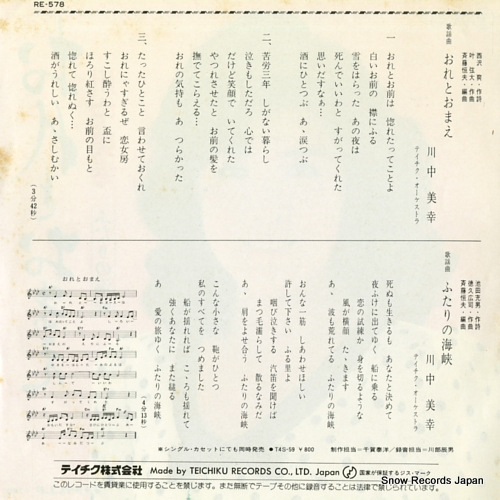 RE-578
歌謡曲
おれとおまえ
西沢 爽・作詩
叶 弦大・作曲
斉藤恒夫・編曲
川中美幸
テイチク・オーケストラ
一、おれとお前は 惚れたってことよ
白いお前の 襟にふる
雪をはらった あの夜は
死んでいいわと すがってくれた
思いだすなあ…
酒にひとつぶ あゝ涙つぶ
二、苦労三年 しがない暮し
泣きもしただろ 心では
だけど笑顔で いてくれた
やつれさせたと お前の髪を
撫でてこらえる…
おれの気持も あゝつらかった
三、たったひとこと 言わせておくれ
おれにゃすぎるぜ 恋女房
すこし酔うわと 盃に
ほろり紅さす お前の目もと
惚れて 惚れぬく…
酒がうれしい あゝさしむかい
(3分42秒)
歌謡曲
ふたりの海峡
池田充男・作詩
徳久広司・作曲
斉藤恒夫・編曲
川中美幸
テイチク・オーケストラ
死ぬも生きるも あなたと決めて
夜ふけに出てゆく 船に乗る
恋の試練か 身を切るような
風が横顔 たゝきます
あゝ 波も荒れてる ふたりの海峡
おんな一筋 しあわせほしい
許して下さい ふる里よ
咽び泣きする 汽笛を聞けば
まつ毛濡らして 散るなみだ
あゝ 肩をよせ合う ふたりの海峡
こんな小さな 鞄がひとつ
私のすべてを つめました
船が揺れれば こゝろも揺れて
強くあなたに また縋る
あゝ 愛の旅ゆく ふたりの海峡
(4分13秒)
おれとおまえ
※シングル・カセットにても同時発売 ●T4S-59 ¥800
制作担当=千賀泰洋/録音担当=川部辰男
テイチク株式会社 Made by TEICHIKU RECORDS CO., LTD. Japan 国家が保証するジス・マーク
このレコードを賃貸業に使用することを禁じます。また無断でテープその他に録音することは法律で禁じられています。
Snow Records Japan